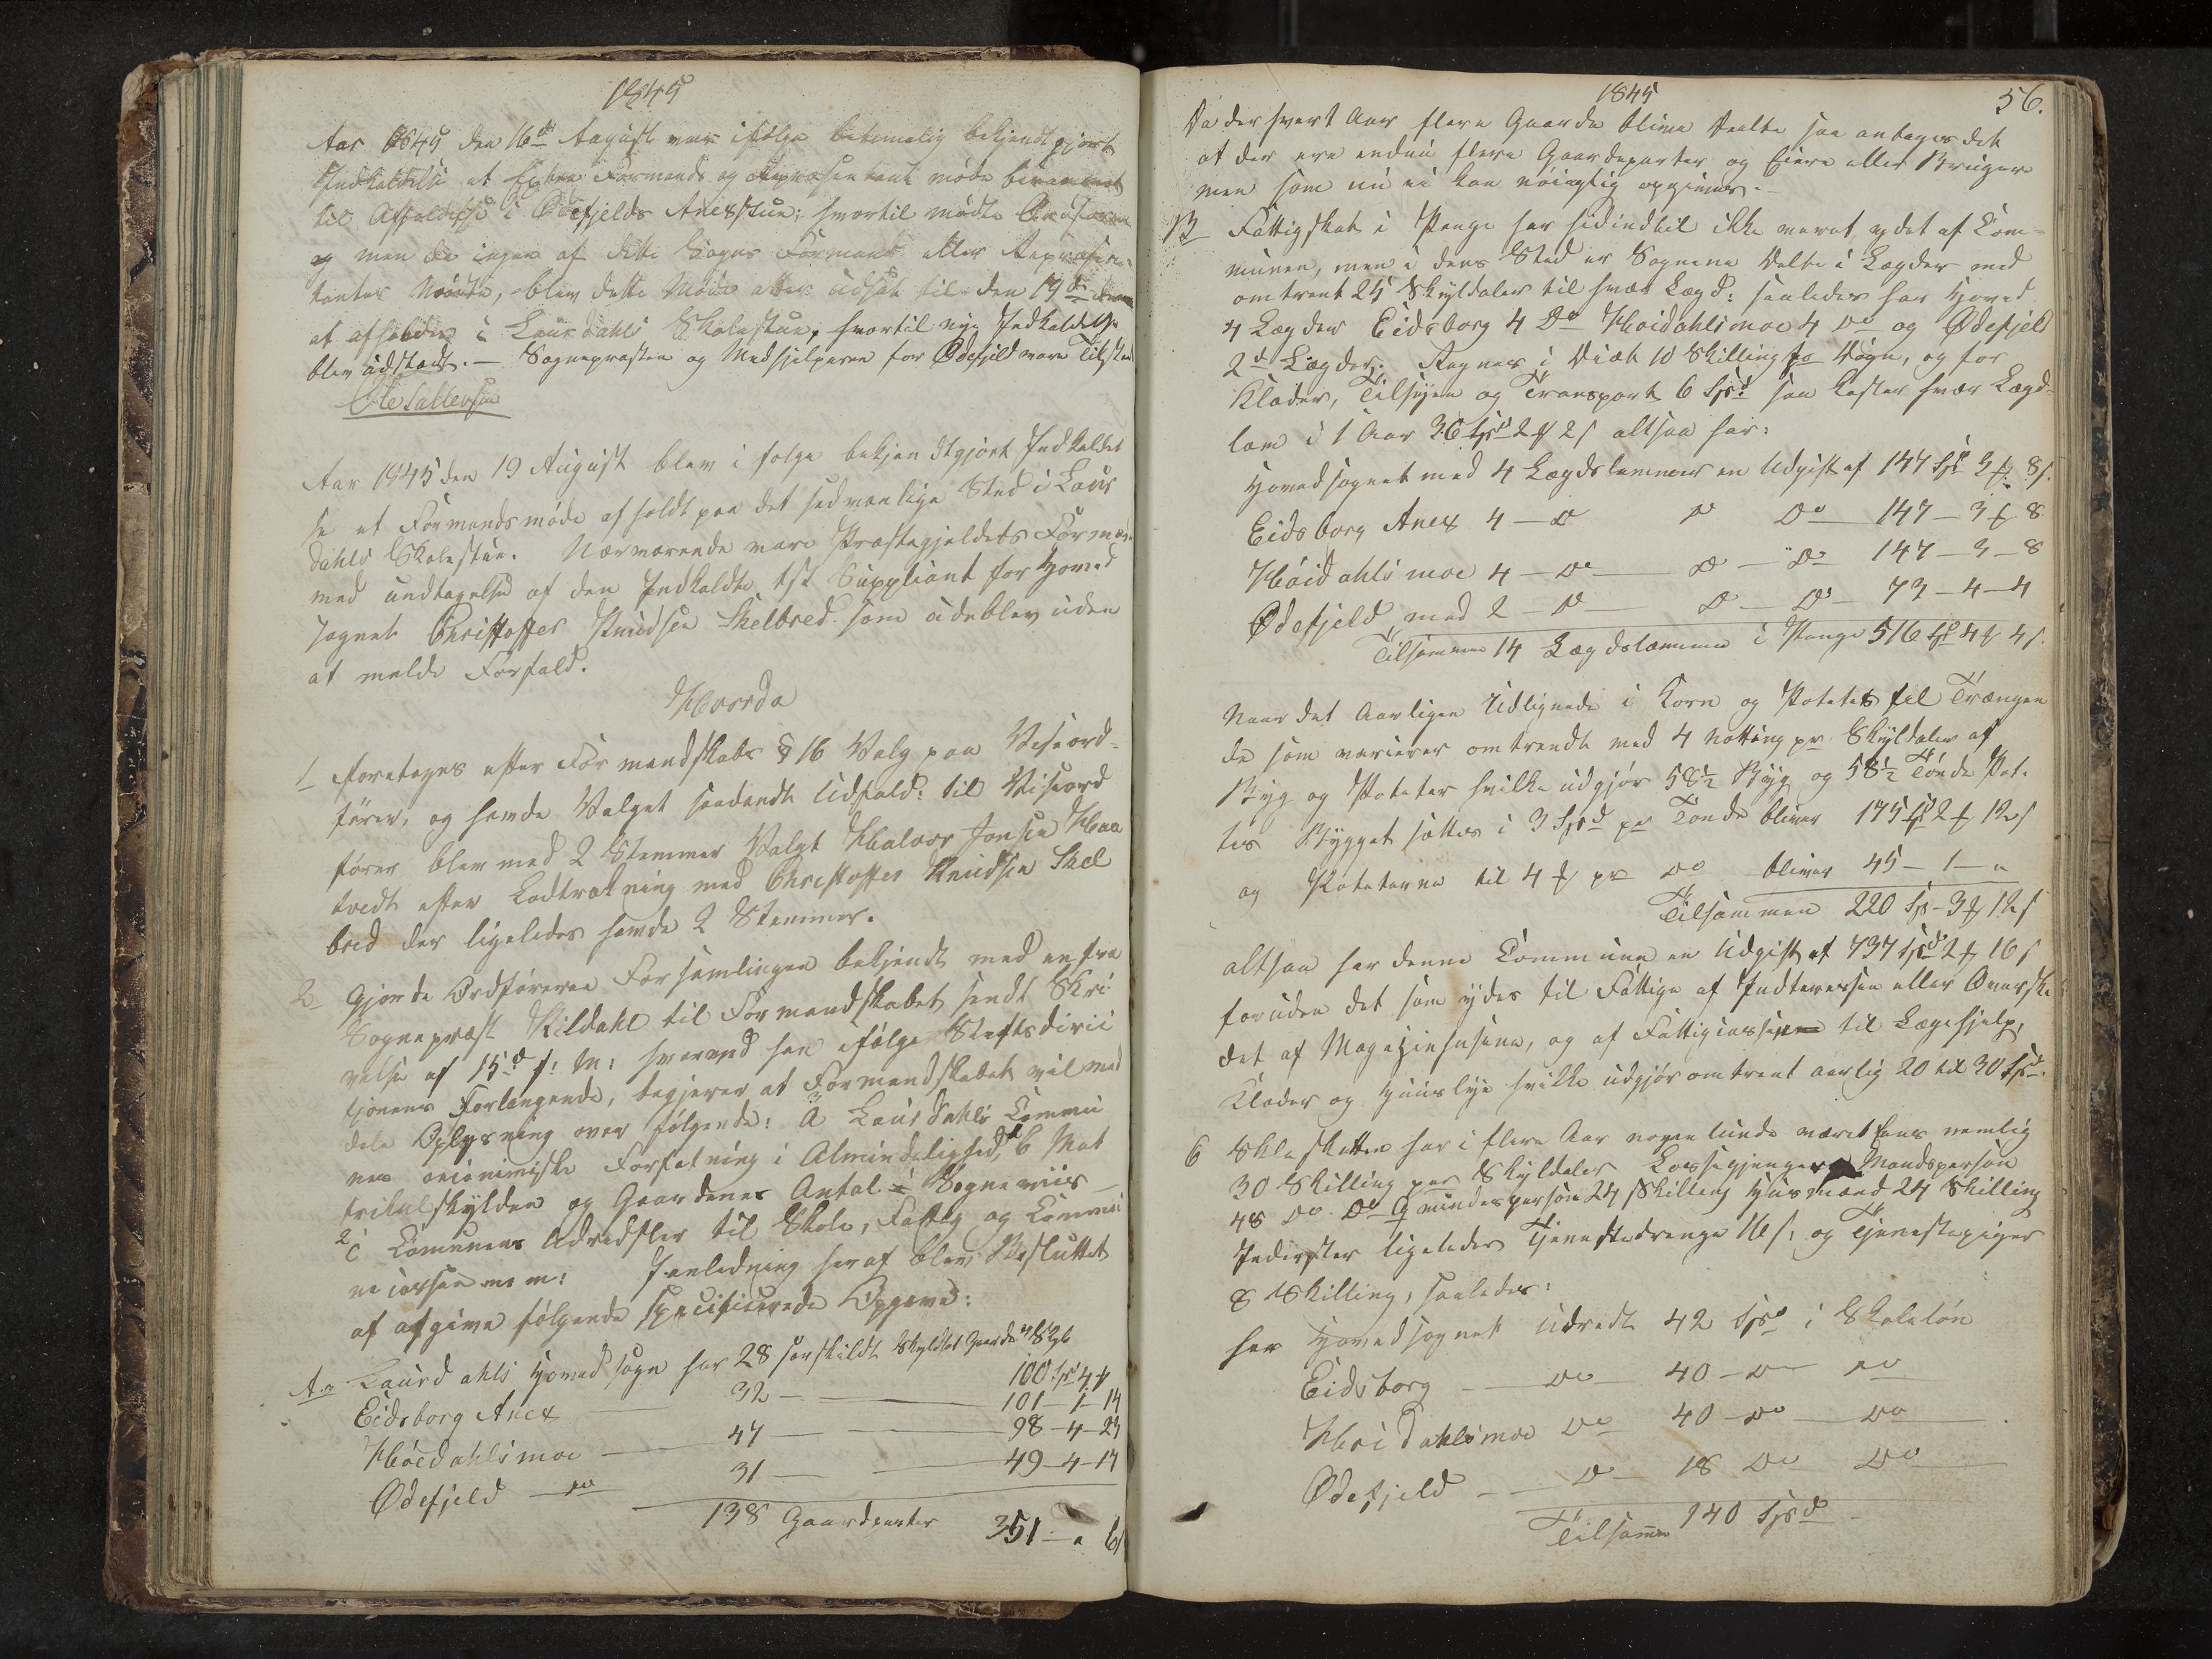 1845
Aar 1845 den 16de August var ifølge betimelig bekjendtgjort
Indkaldelse et Extra Formands og Repræsentant møde berammet
til Afholdelse i Ødefjelds Anexstue; hvortil mødte Ordføren
og men da ingen af dette Sogns Formænd eller Repræsen-
tanter Mødte, blev dette Møde atter udsat til den 19de
at afholdes i Laurdahls Skolestue, hvortil nye Indkaldelse
blev udstædt. — Sognepresten og Medhjelperen for Ødefjeld vare Tilsted
Ole Sallevsen
Aar 1845 den 19 August blev i følge bekjendtgjort Indkaldel
se et Formandsmøde afholdt paa det sedvanlige Sted i Laur
dahls Skolestue. Nærværende vare Præstegjeldets Formænd
med undtagelse af den Indkaldte 1ste Suppliant for Hoved
sognet Christoffer Knudsen Skelbred som udeblev uden
at melde Forfald.
Hvorda
1 foretages efter Formandskabs § 16 Valg paa Viseord-
fører, og havde Valget saadandt Udfald: til Viseord
fører blev med 2 Stemmer Valgt Halvor Jonsen Haa
tvedt efter Lodtrækning med Christoffer Knudsen Skel
bred der ligeledes havde 2 Stemmer.
2 Gjorde Ordføreren Forsamlingen bekjendt med en fra
Sognepræst Kildahl til Formandskabet sendt Skri
velse af 15d f: M: hvorved han ifølge Stiftsdirec
tjonens Forlangende, begjerer at Formandskabet vil med
dele Oplysning over følgende: a Laurdahls Commu
nes oeconomiske Forfatning i Almindelighed, b Mat
trikulskylden og Gaardenes Antal i Sogneviis
c Comunens Udredsler til Skole, Fattig og Commu
necassen m: m: I anledning heraf blev Besluttet
at afgive følgende specificerede Opgave:
A. Laurdahls Hovedsogn har 28 særskildt Skyldsat Gaarde 100 Spd 4
Eidsborg Anex 32 — 101—1—14
Høidahlsmoe — 47 — 98—4—23
Ødefjeld do 31 — 49—4—17
138 Gaardparter 351—„ 6
1845 56.
Da der hvert Aar flere Gaarde blive deelte saa antages det
at der ere endnu flere Gaardeparter og Eiere eller Bruger
men som nu ei kan nøiagtig opgives.-
B Fattigskat i Penge har hidindtil ikke været ydet af Com-
munen, men i dens Sted er Sognene Delte i Lægder med
omtrent 25 Skyldaler til hver Lægd: saaledes har Hoved
4 Lægder Eidsborg 4 Do Høidahlsmoe 4 Do og Ødefjeld
2d Lægder. Regnes i Diæt 10 Skilling pr Døgn, og for
Klæder, Tilsyn og Transport 6 Spd saa koster hver Lægd-
lem i 1 Aar 36 Spd 2 # 2 s altsaa har:
Hovedsognet med 4 Lægdslemmer en Udgift af 147 Spd 3 # 8 s.
Eidsborg Anex 4 — Do Do Do 147 — 3 # 8
Høidahlsmoe 4 — Do — Do — Do 147 — 3 — 8
Ødefjeld med 2 — Do — Do — Do — 73 — 4 — 4
Tilsammen 14 Lægdslemmer i Penge 516 Spd 4 # 4 s.
Naar det Aarligen Udlignede i Korn og Poteter til Trængen
de som varierer omtrendt med 4 Notting pr Skyldaler af
Byg og Poteter hvilke udgjør 58½ Byg og 58½ Tønde Pot-
tes Bygget sættes i 3 Spd pr Tønde bliver 175 Spd 2 # 12 s
og Poteterne til 4 # pr Do bliver 45 — 1 — „
Tilsammen 220 Sp — 3 # 12 s
altsaa har denne Commune en Udgift af 737 Spd 2 # 16 s
foruden det som ydes til Fattige af Indteressen eller Overskud
det af Magazinhusene, og af Fattigcassen til Lægehjelp,
Klæder og Huuslye hvilke udgjør omtrent aarlig 20 til 30 Spd.
C Skoleskatten har i flere Aar nogenlunde været lens nemlig
30 Skilling per Skyldaler Løssegjengere Mandsperson
48 Do. Do Qvindesperson 24 Skilling Husmænd 24 Skilling
Inderster ligeledes Tjenestedrenge 16 s. og Tjenestepiger
8 Skilling, saaledes:
har Hovedsognet Udredt 42 Spd i Skoleløn
Eidsborg — Do — 40 — Do Do
Høidahlsmoe Do 40 — Do — Do
Ødefjeld — Do — 18 Do Do
Tilsamn 140 Spd